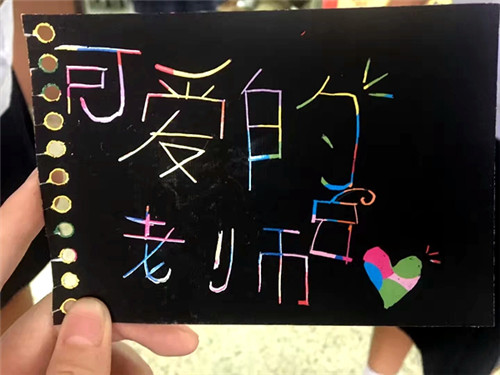 可爱的
老师